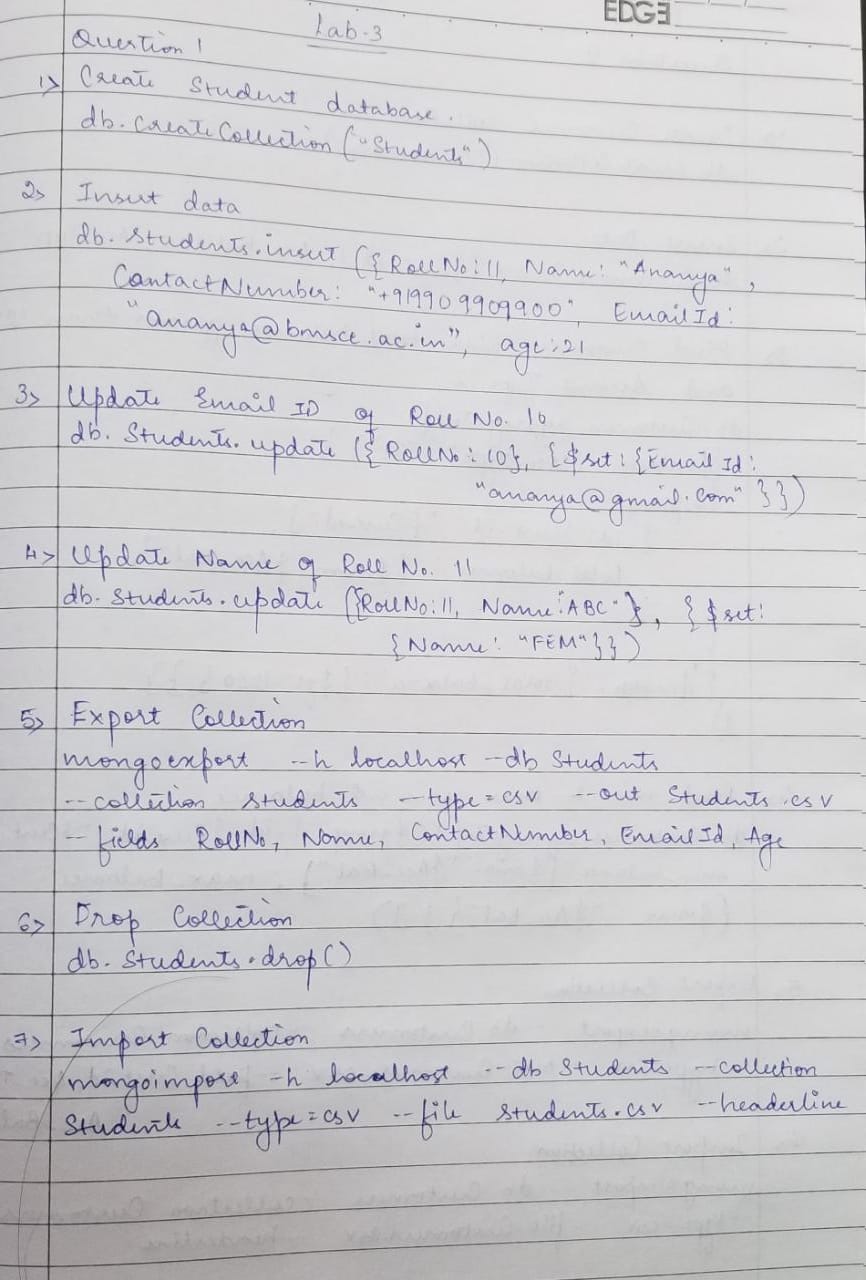 EDGE
Lab-3
Question 1
1> Create Student database.
db.createCollection("Students")
2> Insert data
db.Students.insert({RollNo:11, Name: "Ananya",
ContactNumber: "+919909909900", EmailId:
"ananya@bmsce.ac.in", age:21
3> Update Email ID of Roll No. 10
db.Students.update({RollNo:10}, {$set:{EmailId:
"ananya@gmail.com"}})
4> Update Name of Roll No. 11
db.Students.update({RollNo:11, Name:"ABC"}, {$set:
{Name: "FEM"}})
5> Export Collection
mongoexport --h localhost --db Students
--collection students --type=csv --out Students.csv
--fields RollNo, Name, ContactNumber, EmailId, Age
6> Drop Collection
db.Students.drop()
7> Import Collection
mongoimport -h localhost --db Students --collection
Students --type=csv --file students.csv --headerline